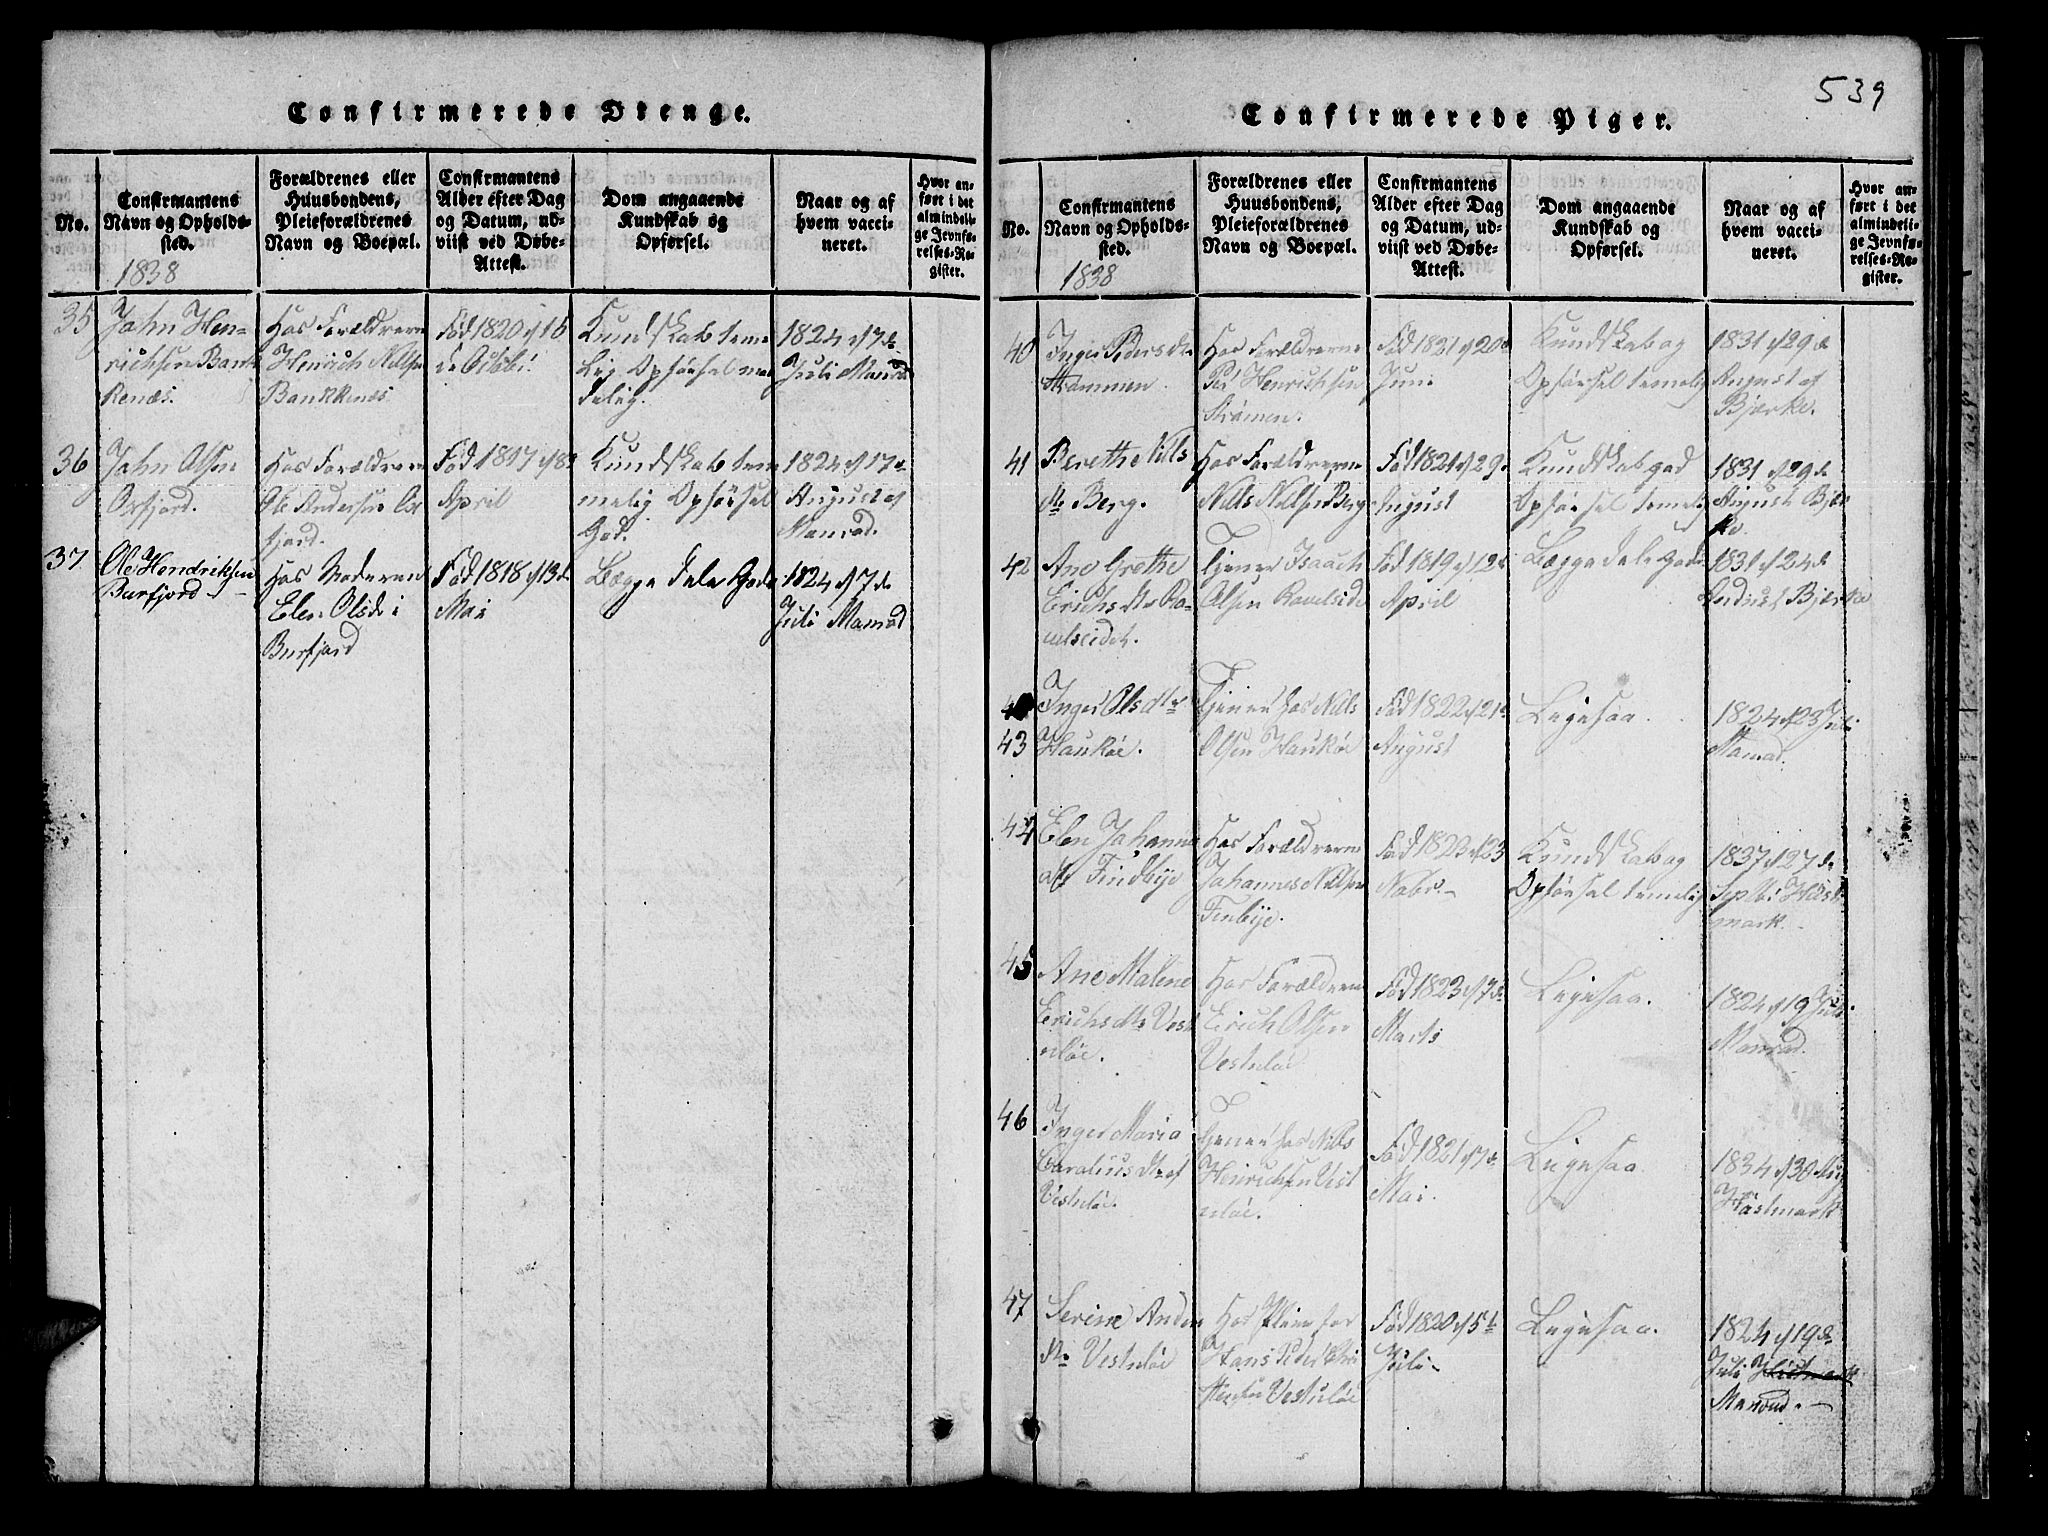 539
Confirmerede Drenge.
No.
Confirmantens
Navn og Opholds-
sted.
1838
Forældrenes eller
Huusbondens,
Pleieforældrenes
Navn og Boepæl.
Confirmantens
Alder efter Dag
og Datum, ud-
viist ved Døbe-
Attest.
Dom angaaende
Kundskab og
Opførsel.
Naar og af
hvem vacci-
neret.
Hvor an-
ført i det
almindeli-
ge Jevnfø-
relses-Re-
gister.
35
John Hen-
richsen Bank
kenæs.
Hos Forældrerne
Henrich Nillsen
Bankkenæs
Fød 1820 d 16
de Octobr
Kundskab teme
lig Opførsel ma
delig.
1824 d 7de
Juli Manrad
36
John Olsen
Oxfjord.
Hos Forældrerne
Ole Andersen Ox
fjord.
Fød 1817 d 8de
April
Kundskab tem
melig Opførsel
God.
1824 d 17de
August af
Manrad.
37
Ole Hendriksen
Burfjord
Hos Moderen
Elen Olsdr i
Burfjord
Fød 1818 d 13de
Mai
Begge dele Gode
1824 d 7de
Juli Manrad
Confirmerede Piger.
No.
Confirmantens
Navn og Opholds-
sted.
1838
Forældrenes eller
Huusbondens,
Pleieforældrenes
Navn og Boepæl.
Confirmantens
Alder efter Dag
og Datum, ud-
viist ved Døbe-
Attest.
Dom angaaende
Kundskab og
Opførsel.
Naar og af
hvem vacci-
neret.
Hvor an-
ført i det
almindeli-
ge Jevnfø-
relses-Re-
gister.
40
Inger Pedersdr
Strømmen
Hos Forældrerne
Ped Henrichsen
Strømen.
Fød 1821 d 20de
Juni
Kundskab og
Opførsel temelig
1831 d 29de
August af
Bjerke.
41
Berethe Nills
dr Berg.
Hos Forældrerne
Nills Nillsen Berg
Fød 1821 d 29de
August
Kundskab god
Opførsel temelig
1831 d 29de
August Bjer
ke.
42
Ane Grethe
Erichsdtr
Tjener Isaach
Olsen
Fød 1819 d 12de
April
Begge dele Gode
1831 d 24de
August Bjerke
43
Inger Olsdtr
Haukøe.
Tjener hos Nills
Olsen Haukøe
Fød 1822 d 21de
August
Ligesaa.
1824 d 23 Juli
Manrad.
44
Elen Johannes
dtr Findbye
Hos Forældrerne
Johannes Nillsen
Finbye.
Fød 1823 d 23
Nobr.
Kundskab og
Opførsel temelig
1837 d 27de
Septbr Høst
mark.
45
Ane Malene
Erichsdtr Vest
erløe.
Hos Forælderne
Erich Olsen
Vesterløe
Fød 1823 d 7de
Marts
Ligesaa.
1824 d 19 Juli
Manrad.
46
Inger Maria
Caroliusdtr af
Vesterløe.
Tjener hos Nills
Henrichsen Vest
erløe.
Fød 1821 d 7de
Mai.
Ligesaa
1834 d 30 Aug
Høstmark
47
Serine Anders
dtr Vesterløe
Hos Pleiefor
Hans Peder
Vesterløe
Fød 1820 d 5te
Juli
Ligesaa.
1824 d 19de
Juli Høstmark
Manrad.